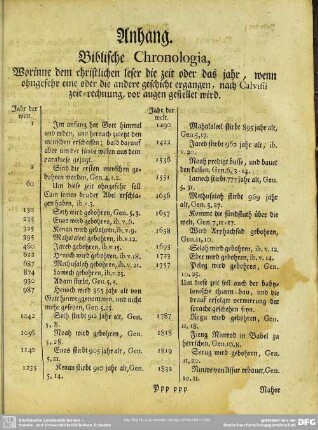 Anhang.
Biblische Chronologia,
Worinne dem christlichen leser die zeit oder das jahr, wenn
ohngefehr eine oder die andere geschicht ergangen, nach Calvisii
zeit-rechnung, vor augen gestellet wird.
Jahr der
welt.
1 Im anfang hat Gott himmel
und erden, und hernach zuletzt den
menschen erschaffen; bald darauf
aber um der sünde willen aus dem
paradiese gejagt.
2 Sind die ersten menschen ge-
bohren worden, Gen. 4. 1. 2.
60 Um diese zeit ohngefehr hat
Cain seinen bruder Abel erschlagen
130 Seth wird gebohren, Gen. 5. 3.
235 Enos wird gebohren, ib. v. 6.
325 Kenan wird gebohren, ib. v. 9.
395 Mahalaleel gebohren, ib. v. 12.
460 Jared gebohren, ib. v. 15.
622 Henoch wird gebohren, ib. v. 18.
687 Methusalah gebohren, ib. v. 21.
874 Lamech gebohren, ib. v. 25.
930 Adam stirbt, Gen. 5, 5.
987 Henoch wird 365 jahr alt von
Gott hinweggenommen, und nicht
mehr gesehen, Gen. 5, 23.
1042 Seth stirbt 912 jahr alt, Gen.
5, 8.
1056 Noah wird gebohren, Gen.
5, 28.
1140 Enos stirbt 905 jahr alt, Gen.
5, 11.
1235 Kenan stirbt 910 jahr alt, Gen.
5, 14.
Jahr der
welt.
1290 Mahalaleel stirbt 895 jahr alt,
Gen. 5, 17.
1422 Jared stirbt 962 jahr alt, ib.
v. 20.
1536 Noah prediget busse, und bauet
den kasten, Gen. 6, 3. 14.
1651 Lamech stirbt 777 jahr alt, Gen.
5, 31.
1656 Methusalah stirbt 969 jahr
alt, Gen. 5, 27.
1657 Kommt die sündfluth über die
welt, Gen. 7, 11. 27.
1658 Wird Arphachsad gebohren,
Gen. 11, 10.
1693 Selah wird gebohren, ib. v. 12.
1723 Eber wird gebohren, ib. v. 14.
1757 Peleg wird gebohren, Gen.
10, 25.
Um diese zeit soll auch der baby-
lonische thurn-bau, und die
darauf erfolgte verwirrung der
sprache geschehen seyn.
1787 Regu wird gebohren, Gen.
11, 18.
1818 Fieng Nimrod in Babel zu
herrschen, Gen. 10, 8.
1819 Serug wird gebohren, Gen.
11, 20.
1832 erbauet, Gen.
10, 11.
Ppp ppp
Nahor